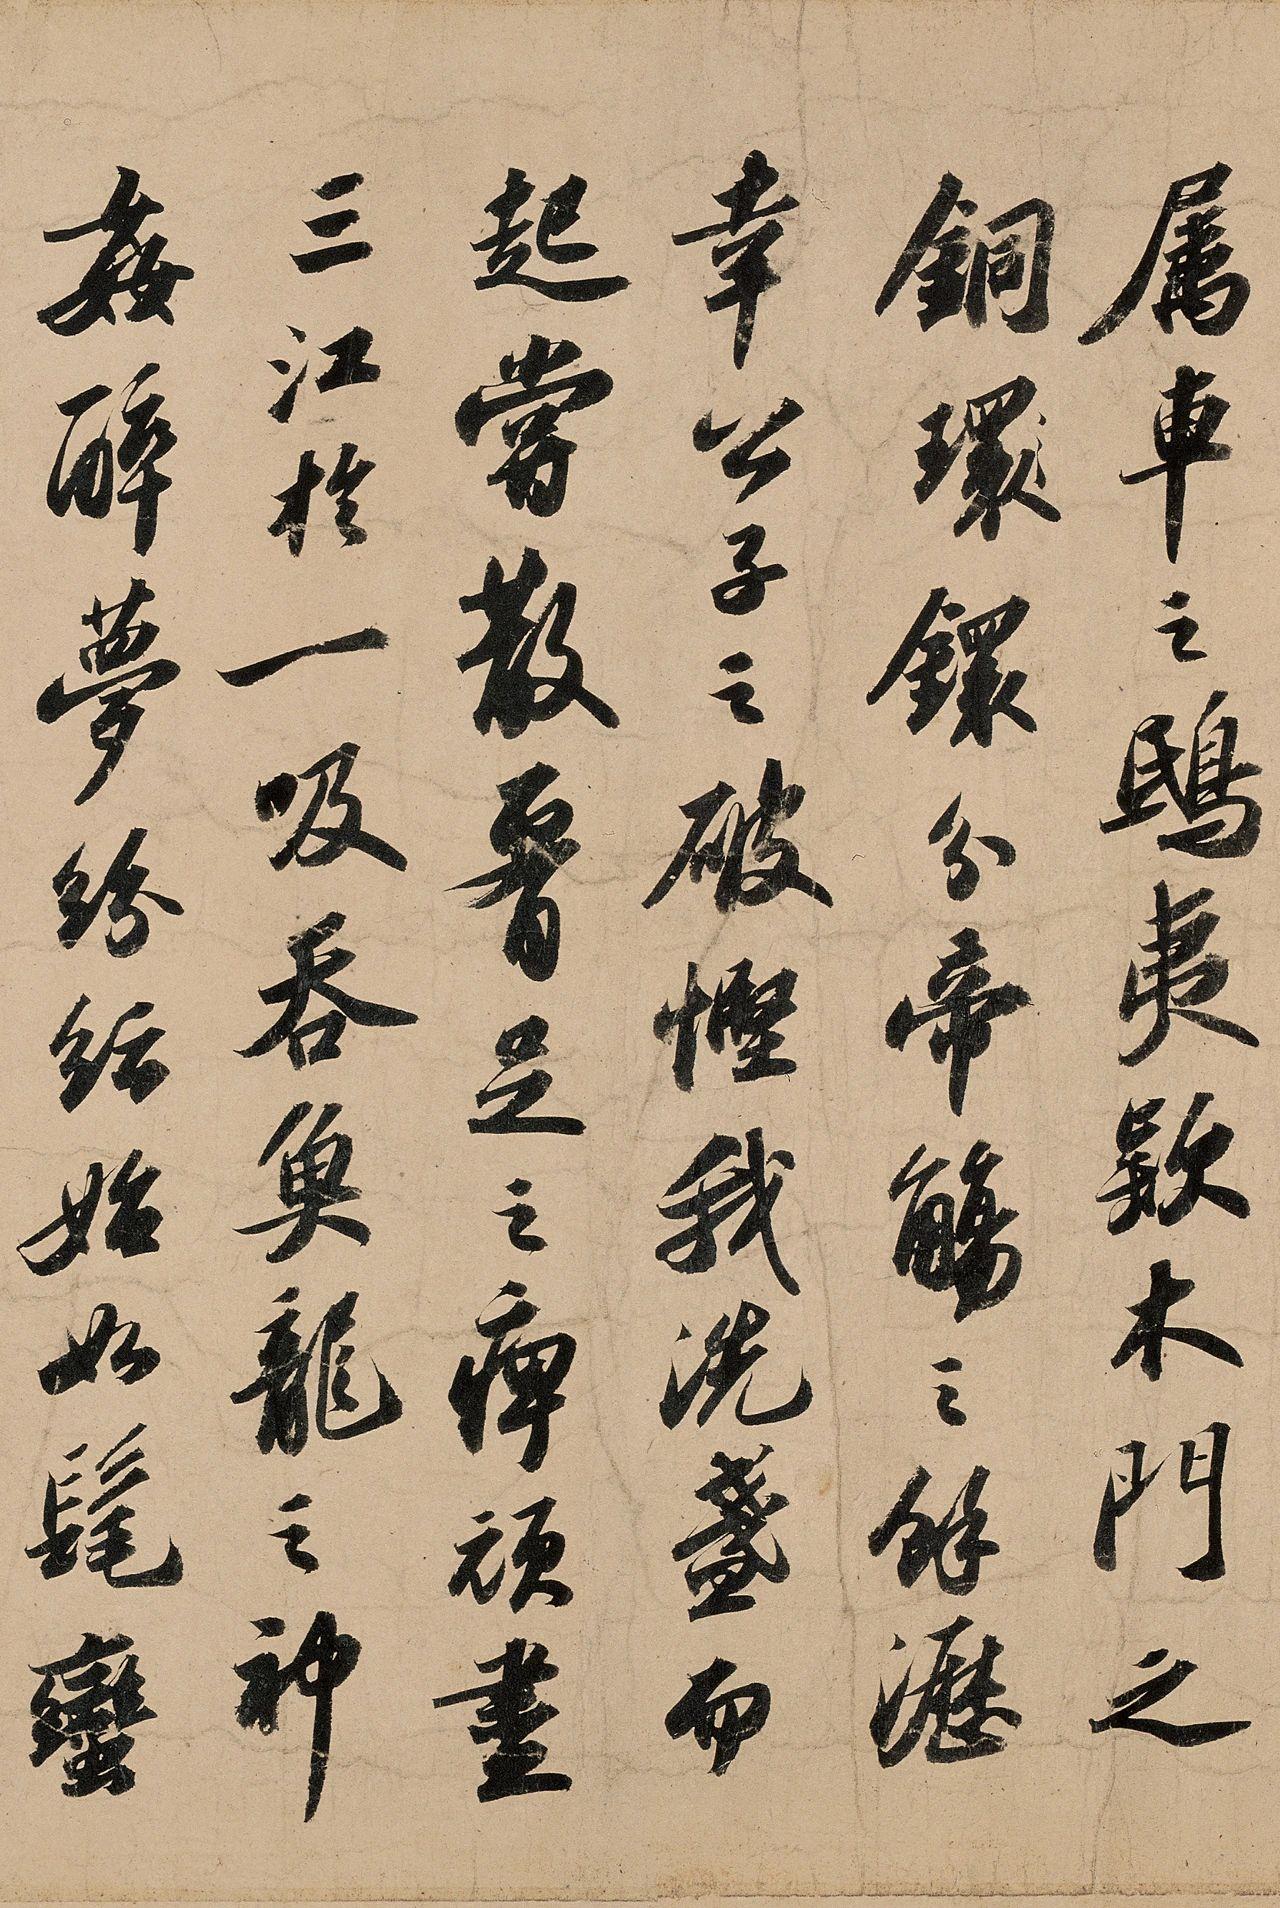 属車之鴟夷款木門之
銅環鐶分帝觴之餘瀝
幸公子之破慳我洗盞而
起嘗散腰足之痺頑盡
三江於一吸吞魚龍之神
姦醉夢紛紜始如髦蠻